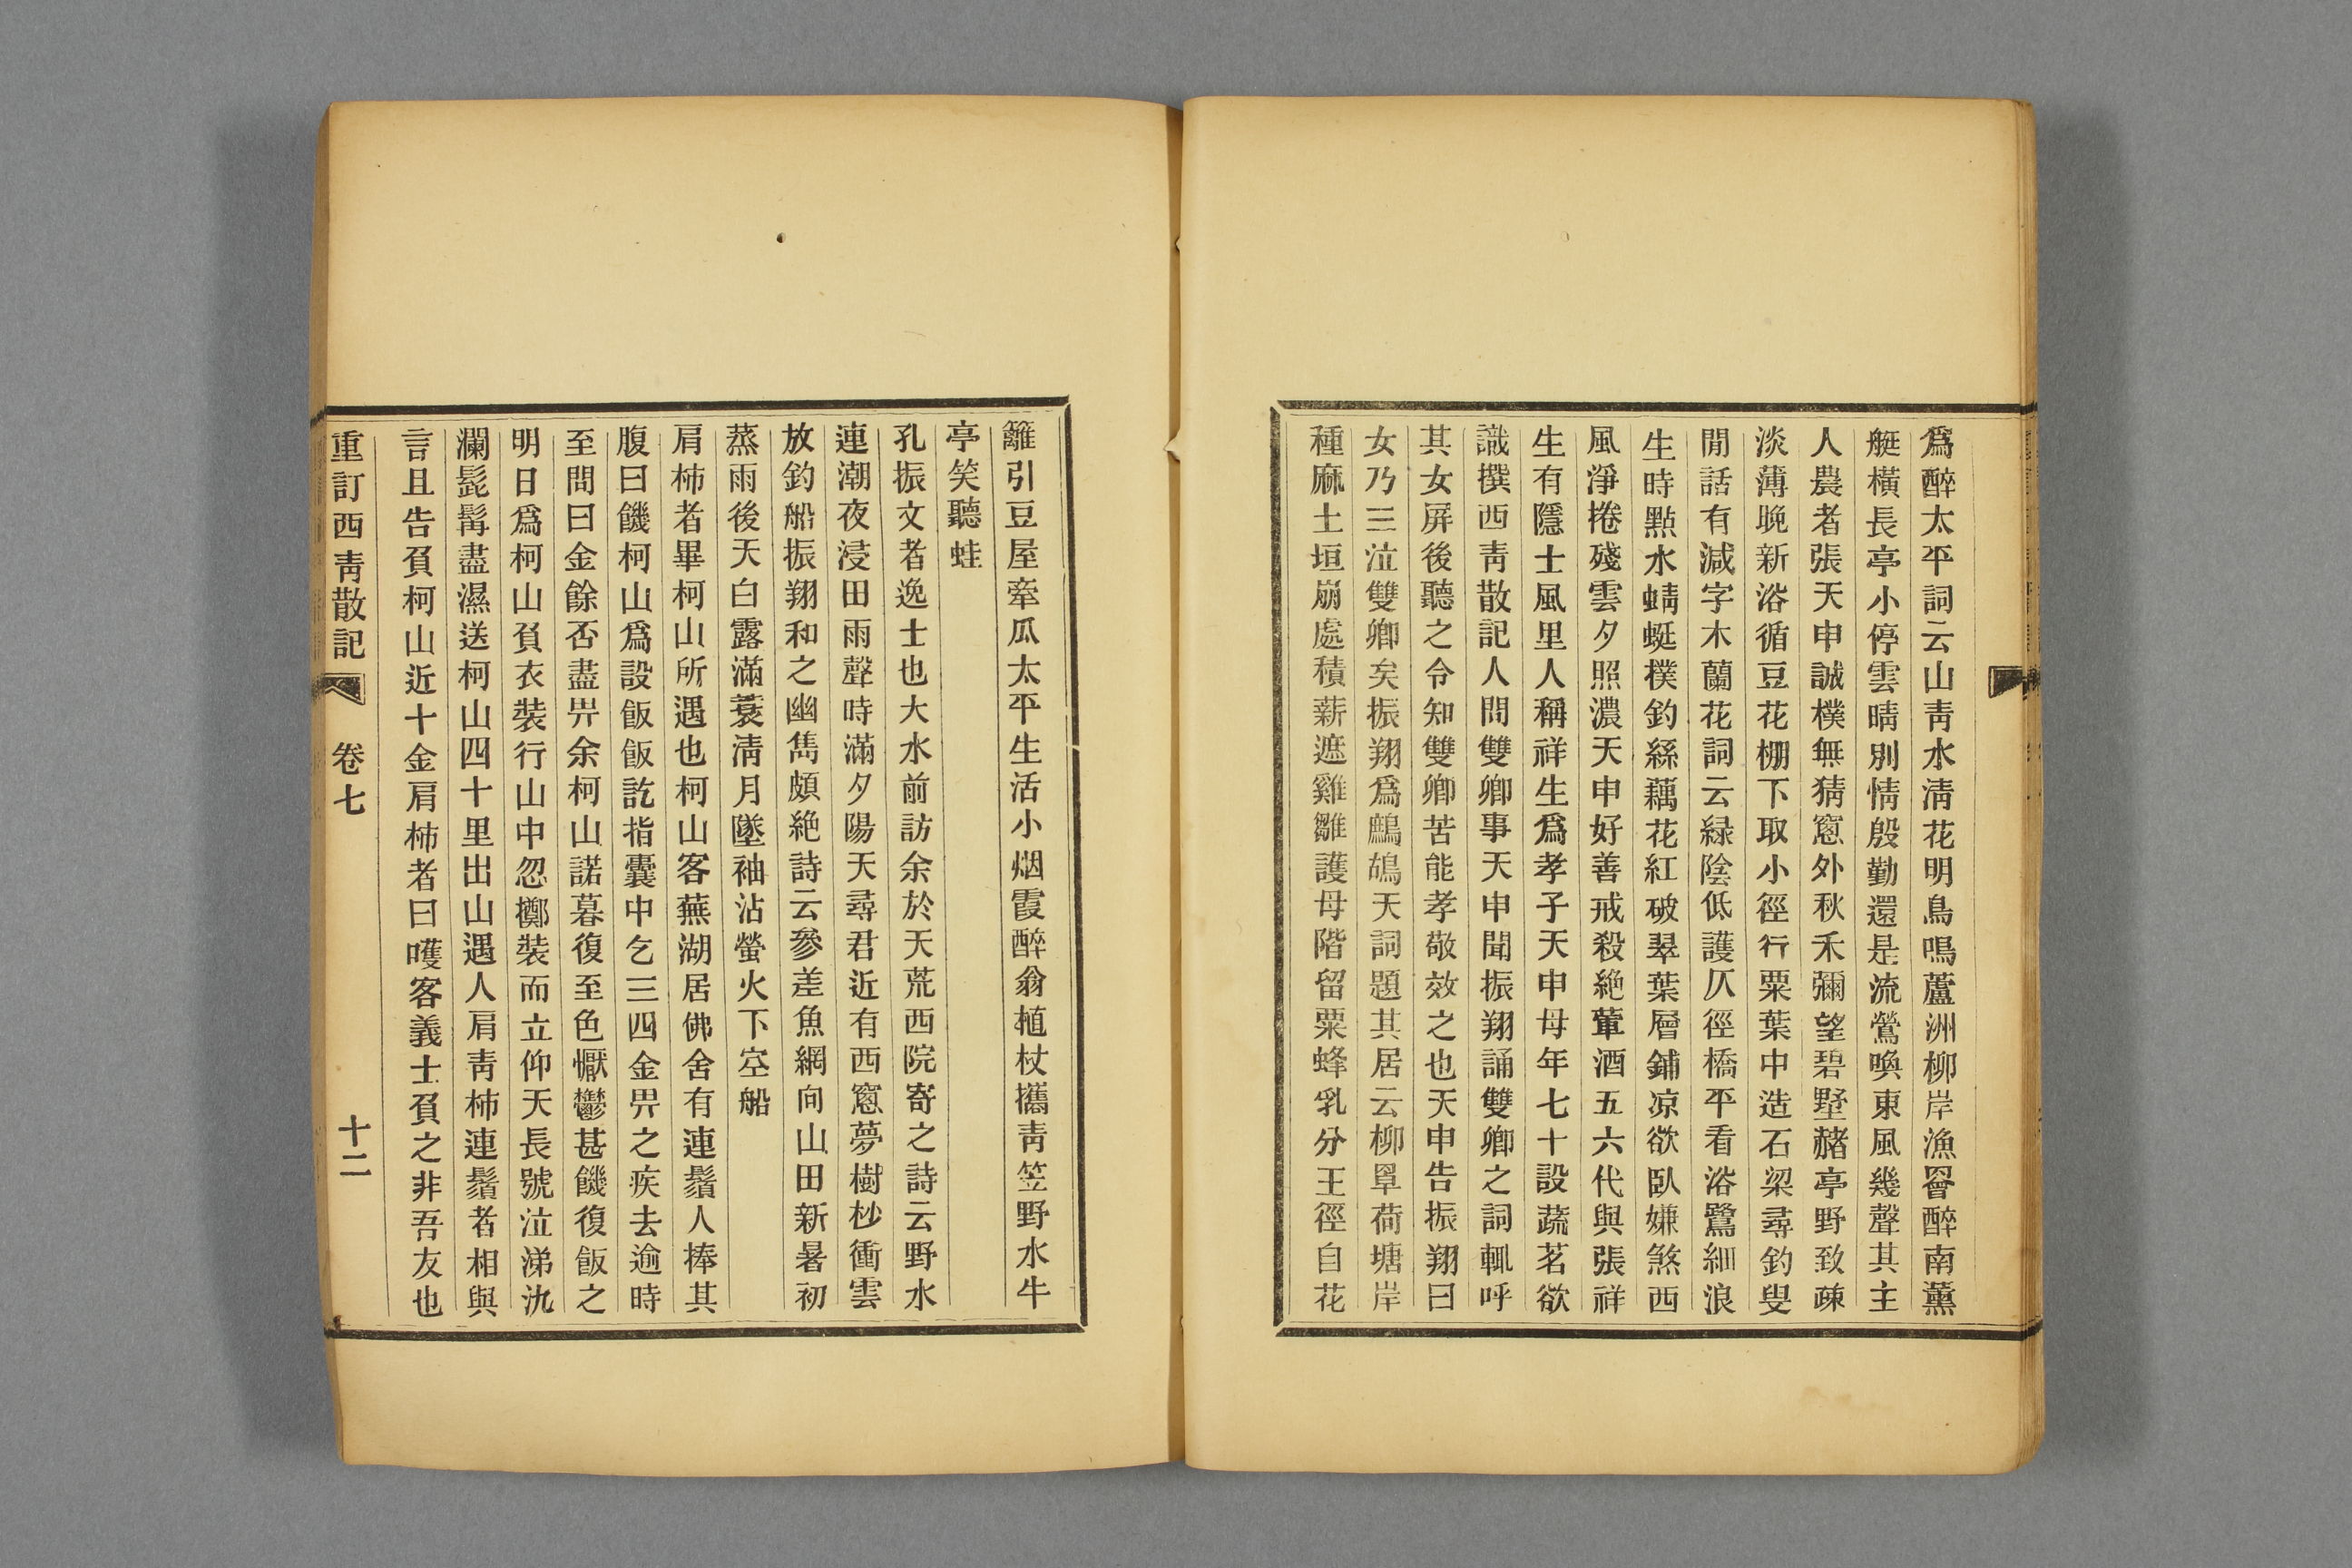 爲醉太平詞云山靑水淸花明鳥鳴蘆洲柳岸漁罾醉南薰
艇橫長亭小停雲晴別情殷勤還是流鶯喚東風幾聲其主
人農者張天申誠樸無猜窻外秋禾彌望碧墅赭亭野致疎
淡薄晚新浴循豆花棚下取小徑行粟葉中造石梁尋釣叟
閒話有減字木蘭花詞云緑陰低護仄徑橋平看浴鷺細浪
生時點水蜻蜓撲釣絲藕花紅破翠葉層鋪凉欲臥嫌煞西
風淨捲殘雲夕照濃天申好善戒殺絶葷酒五六代與張祥
生有隱士風里人稱祥生爲孝子天申母年七十設蔬茗欲
識撰西靑散記人問雙卿事天申聞振翔誦雙卿之詞輒呼
其女屏後聽之令知雙卿苦能孝敬效之也天申告振翔曰
女乃三泣雙卿矣振翔爲鷓鴣天詞題其居云柳罩荷塘岸
種麻土垣崩處積薪遮雞雛護母階留粟蜂乳分王徑自花
籬引豆屋牽瓜太平生活小烟霞醉翁植杖攜靑笠野水牛
亭笑聽蛙
孔振文者逸士也大水前訪余於天荒西院寄之詩云野水
連潮夜浸田雨聲時滿夕陽天尋君近有西窻夢樹杪衝雲
放釣船振翔和之幽雋頗絶詩云參差魚網向山田新暑初
蒸雨後天白露滿蓑淸月墜袖沾螢火下空船
肩柹者畢柯山所遇也柯山客蕪湖居佛舍有連鬚人捧其
腹曰饑柯山爲設飯飯訖指囊中乞三四金畀之疾去逾時
至問曰金餘否盡畀余柯山諾暮復至色懨鬱甚饑復飯之
明日爲柯山負衣裝行山中忽擲裝而立仰天長號泣涕氿
瀾髭髯盡濕送柯山四十里出山遇人肩靑柹連鬚者相與
言且告負柯山近十金肩柹者曰嚄客義士負之非吾友也
重訂西靑散記 卷七 十二